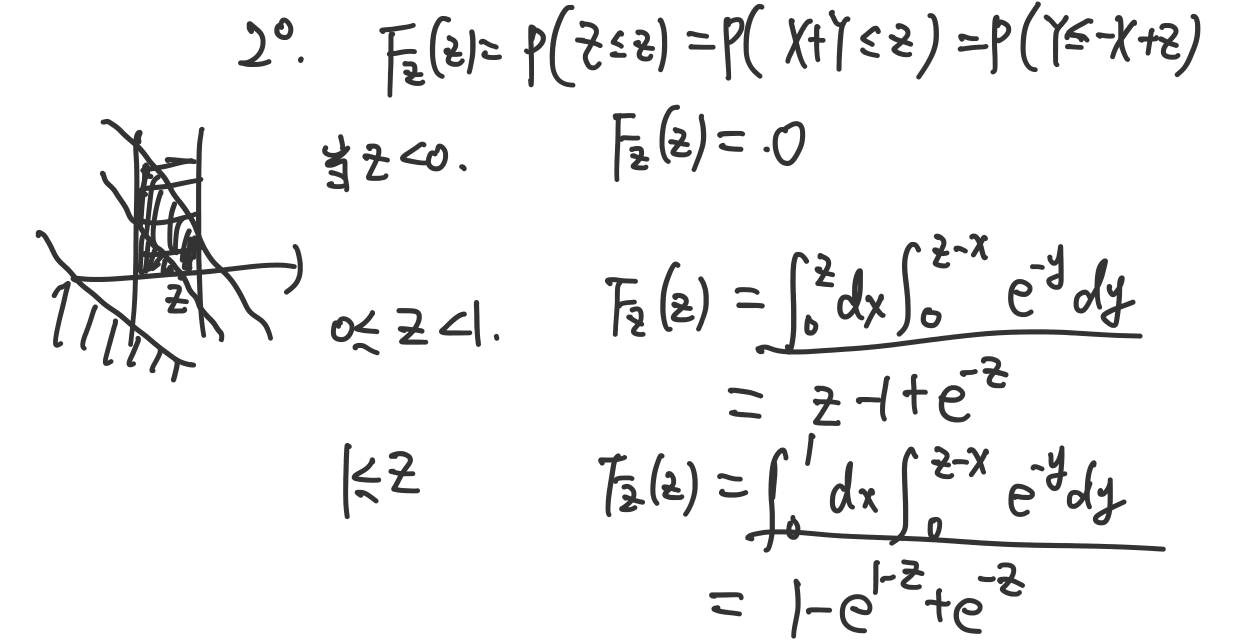 2°. F_Z(z) = P(Z ≤ z) = P(X+Y ≤ z) = P(Y ≤ -X+z)
当 z < 0. F_Z(z) = .0
z
0 ≤ z < 1. F_Z(z) = ∫_0^z dx ∫_0^{z-x} e^{-y} dy
= z - 1 + e^{-z}
1 ≤ z F_Z(z) = ∫_0^1 dx ∫_0^{z-x} e^{-y} dy
= 1 - e^{1-z} + e^{-z}